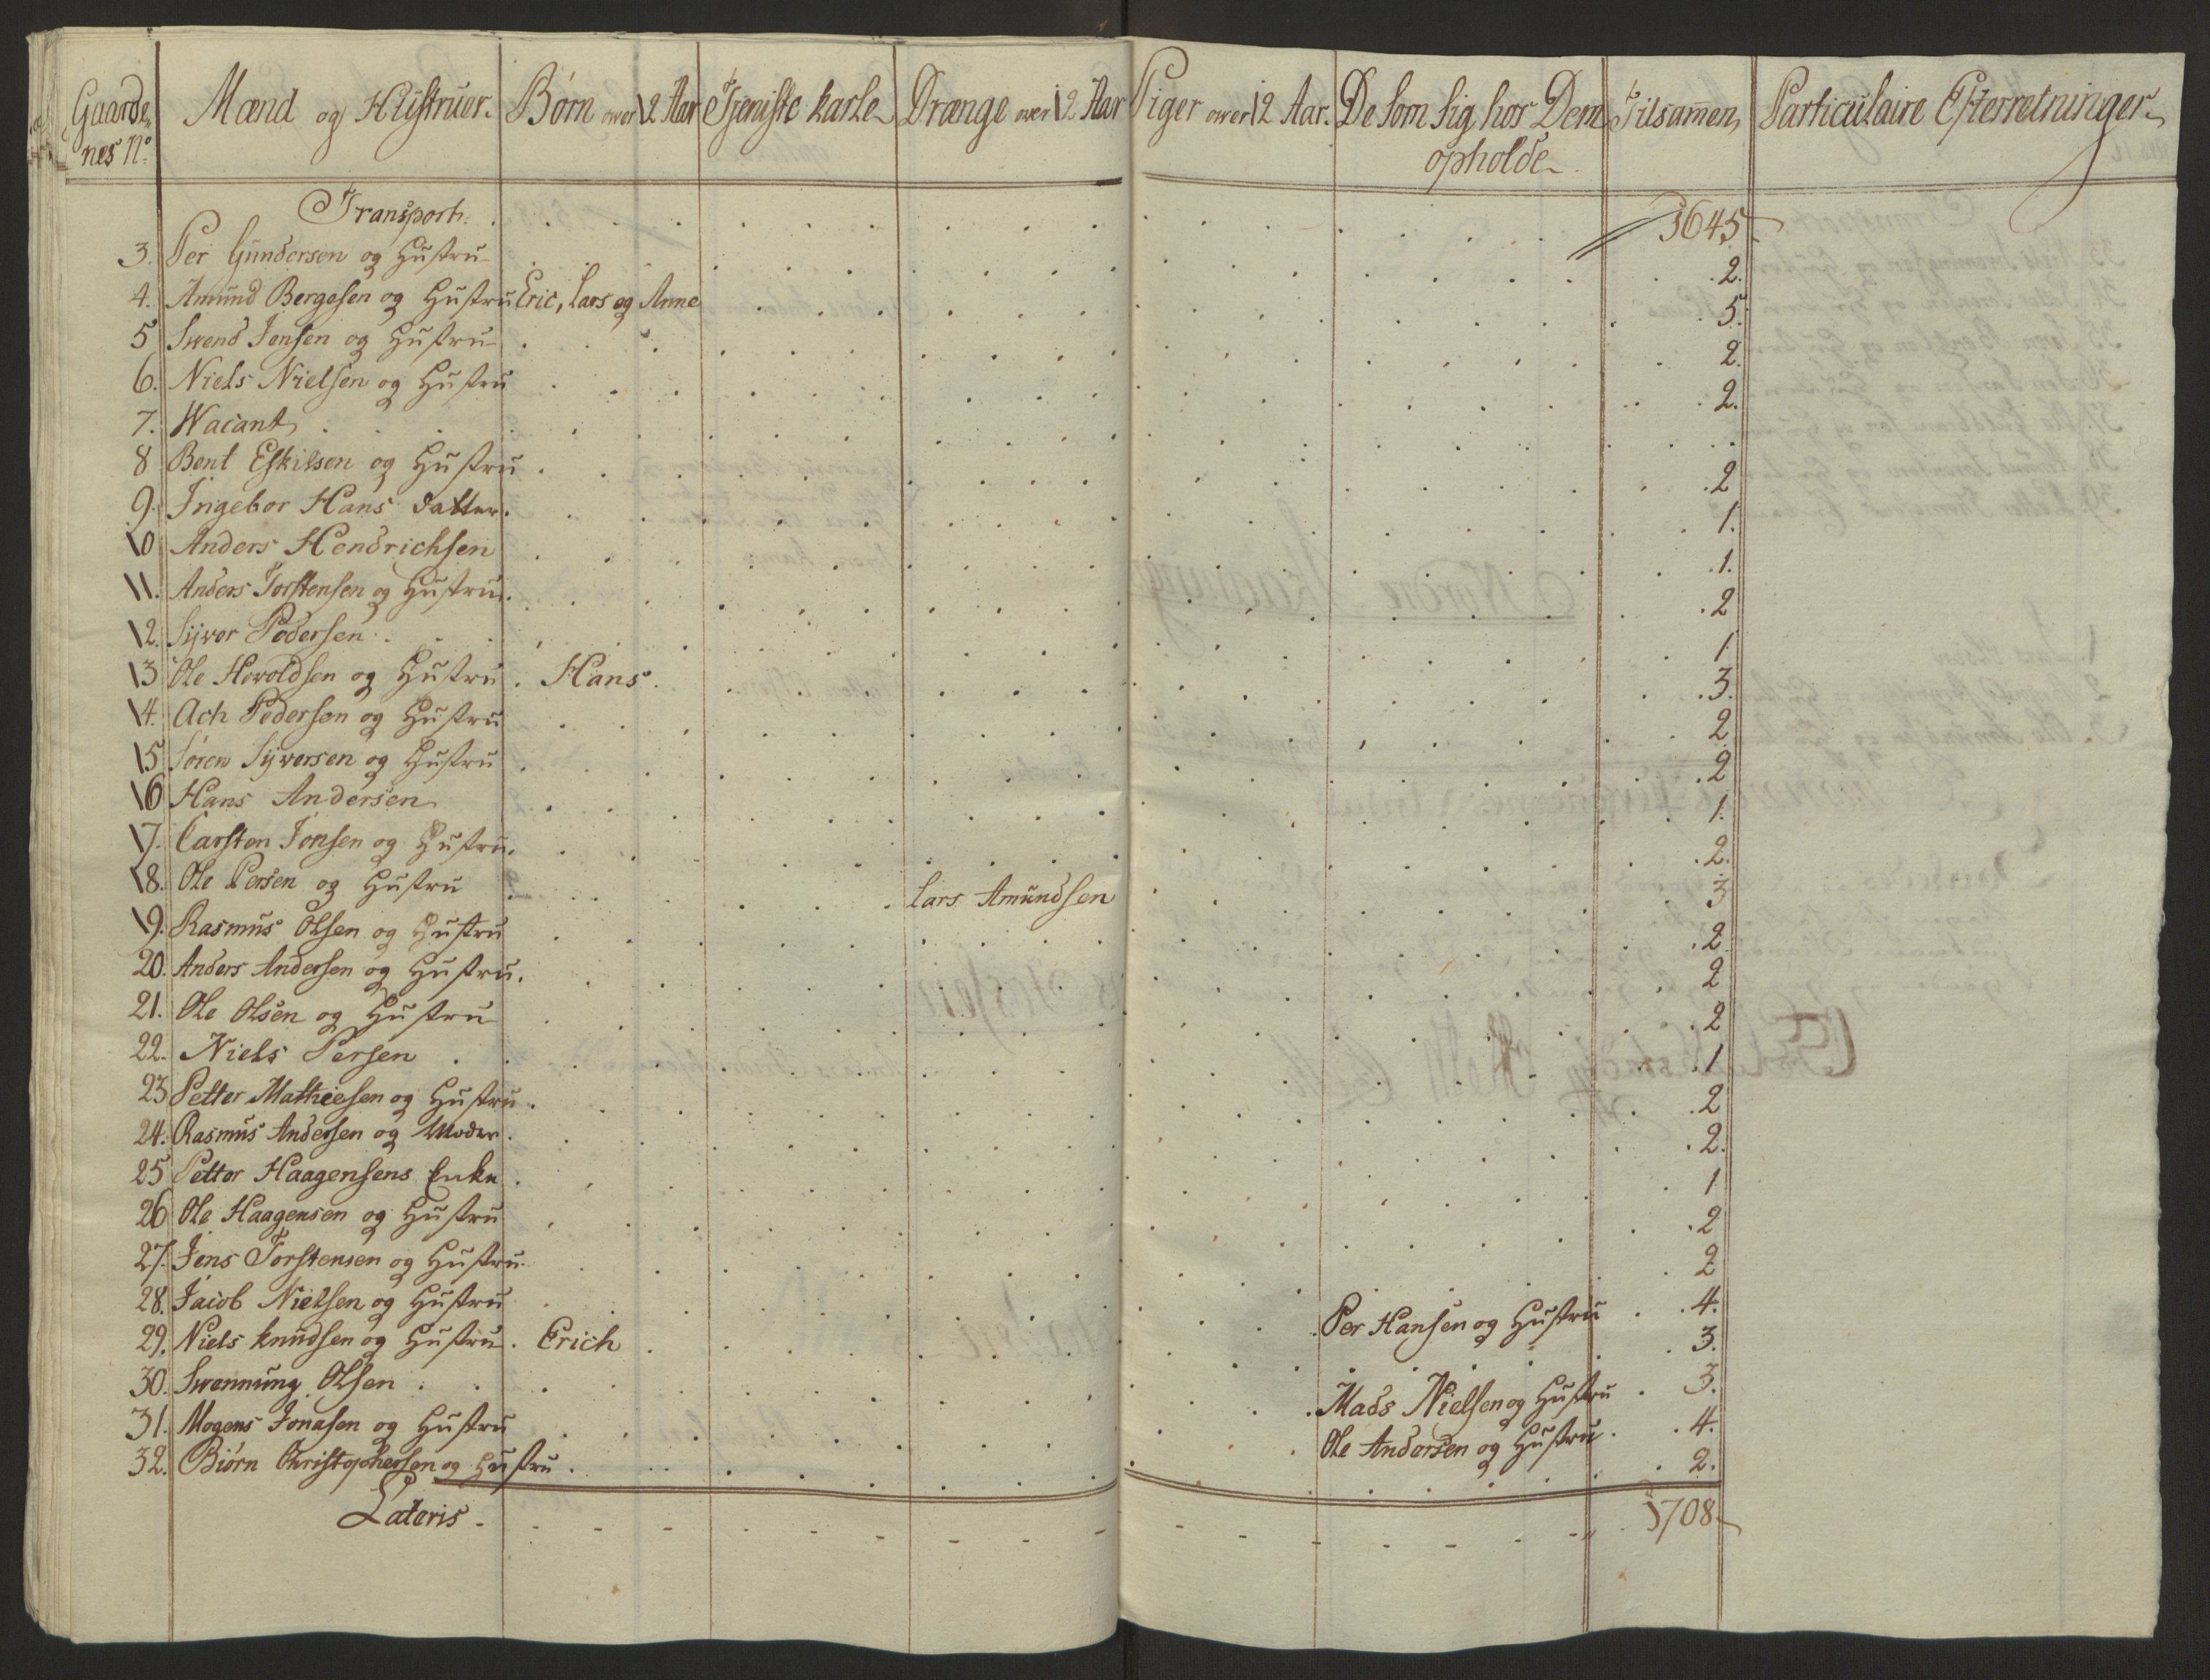 Gaarde- nes No. | Mænd og Hustruer. | Børn over 12 Aar | Tjeniste karle | Drænge over 12 Aar | Piger over 12 Aar. | De som sig hos Dem opholde | Tilsamen | Particulaire Efterretninger
Transport: 3645
3. Per Gundersen og Hustru 2.
4. Amund Bergesen og Hustru Eric, Lars og Anne 5.
5 Swend Jensen og Hustru 2.
6. Niels Nielsen og Hustru 2.
7. Wacant
8 Bent Eskilsen og Hustru 2
9. Ingebor Hans datter. 1.
10 Anders Hendrichsen 1.
11. Anders Torstensen og Hustru. 2
12. Sijver Pedersen 1
13 Ole Horoldsen og Hustru Hans 3.
14. Ach Pedersen og Hustru 2
15 Søren Sijversen og Hustru 2
16 Hans Andersen 1.
17. Carsten Jonsen og Hustru. 2.
18. Ole Persen og Hustru Lars Amundsen 3
19. Rasmus Olsen og Hustru 2
20. Anders Andersen og Hustru. 2
21. Ole Olsen og Hustru 2
22. Niels Persen 1
23 Petter Mathiesen og Hustru 2
24. Rasmus Andersen og Moder. 2.
25 Petter Haagensens Enke 1
26 Ole Haagensen og Hustru 2
27. Jens Torstensen og Hustru 2
28. Jacob Nielsen og Hustru Per Hansen og Hustru 4.
29. Niels Knudsen og Hustru Erich 3.
30. Swennung Olsen Mads Nielsen og Hustru 3.
31. Mogens Jonasen og Hustru Ole Andersen og Hustru 4.
32. Biørn Christophersen og Hustru 2.
Lateris 3708